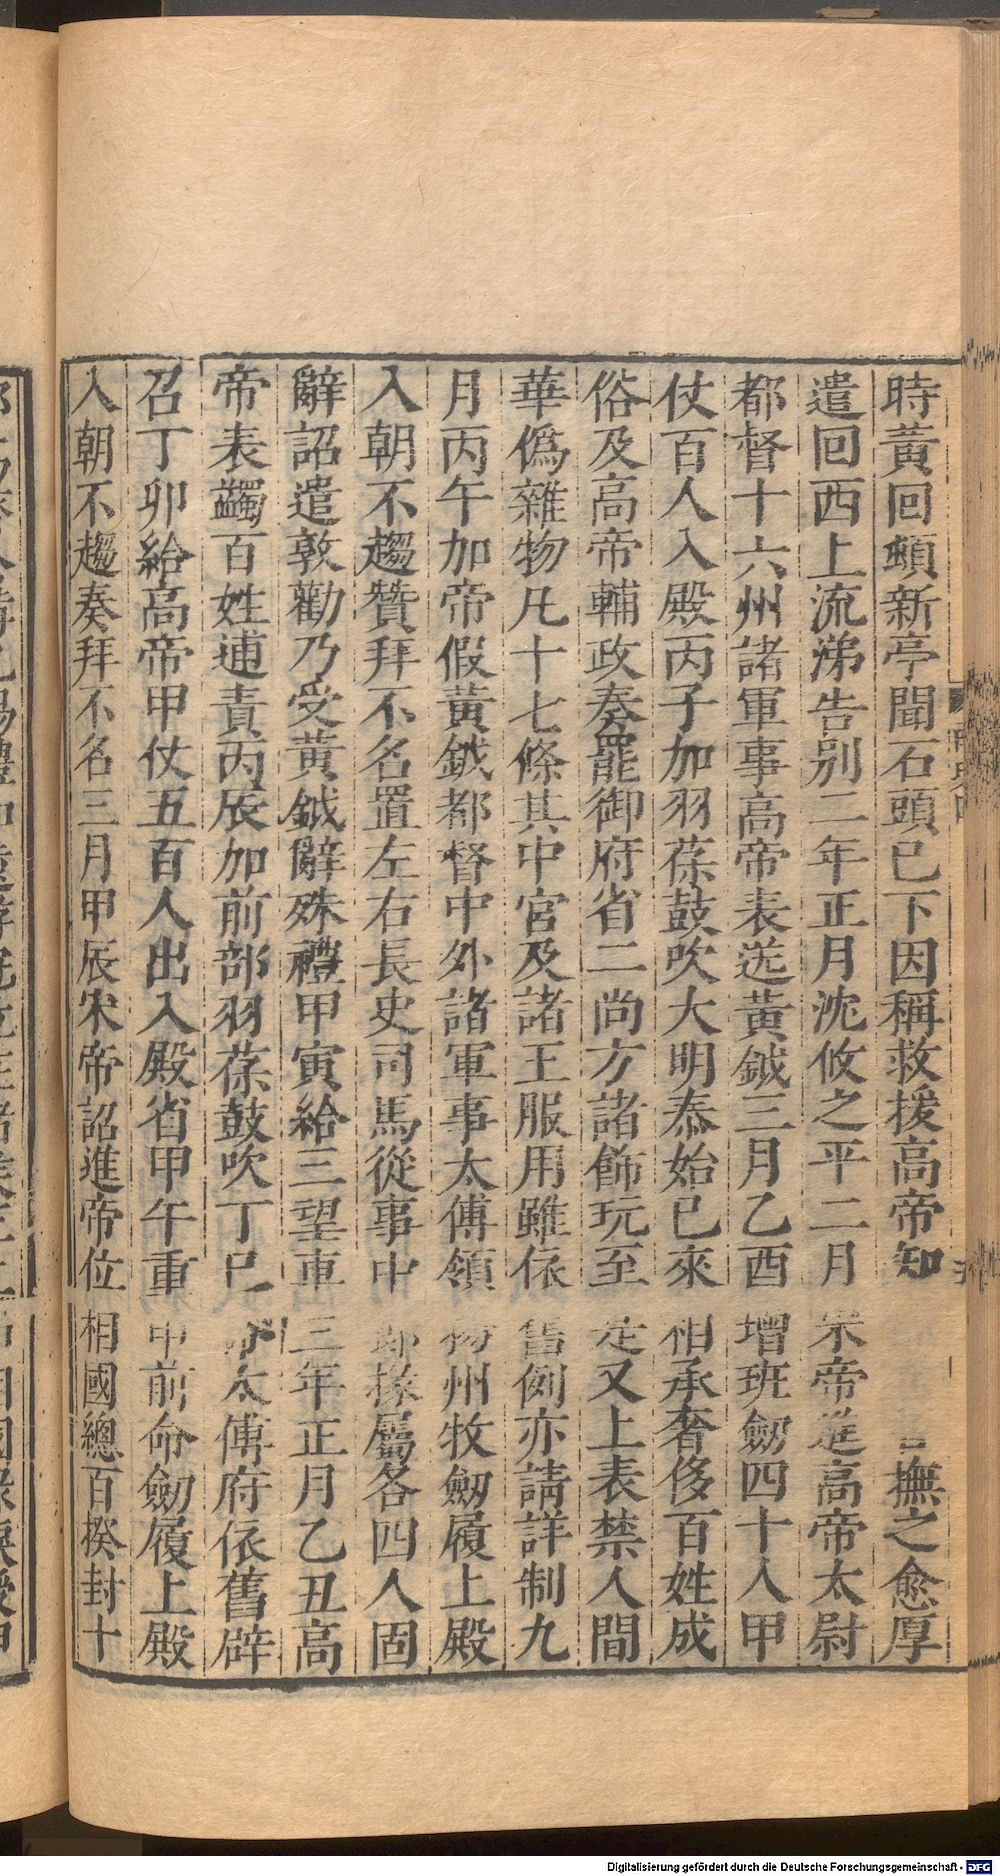 時黃回頓新亭聞石頭已下因稱救援高帝知言撫之愈厚
遣回西上流涕告别二年正月沈攸之平二月宋帝進高帝太尉
都督十六州諸軍事高帝表送黃鉞三月乙酉增班劒四十人甲
仗百人入殿丙子加羽葆鼓吹大明泰始已來相承奢侈百姓成
俗及高帝輔政奏罷御府省二尚方諸飾玩至是又上表禁人間
華僞雜物凡十七條其中宮及諸王服用雖依舊例亦請詳制九
月丙午加帝假黃鉞都督中外諸軍事太傅領揚州牧劒履上殿
入朝不趨贊拜不名置左右長史司馬從事中郎掾屬各四人固
辭詔遣敦勸乃受黃鉞辭殊禮甲寅給三望車三年正月乙丑高
帝表蠲百姓逋責丙辰加前部羽葆鼓吹丁巳命太傅府依舊辟
召丁卯給高帝甲仗五百人出入殿省甲午重申前命劒履上殿
入朝不趨奏拜不名三月甲辰宋帝詔進帝位相國總百揆封十
Digitalisierung gefördert durch die Deutsche Forschungsgemeinschaft - DFG